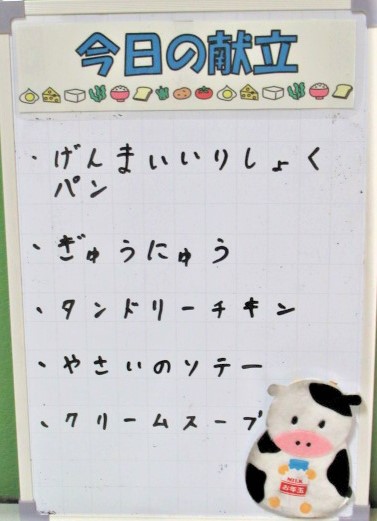 今日の献立
・げんまいいりしょく
パン
・ぎゅうにゅう
・タンドリーチキン
・やさいのソテー
・クリームスープ
MILK
お年玉